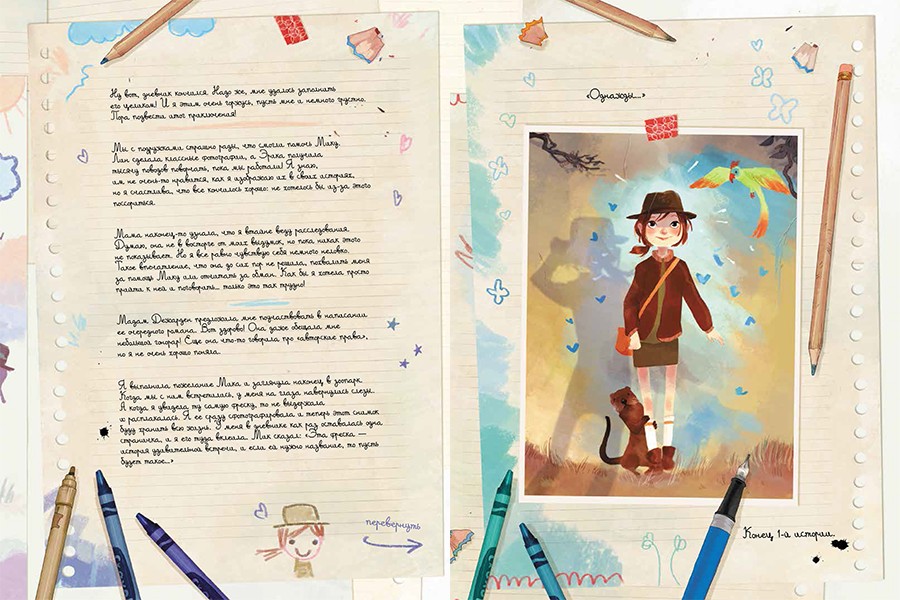 Ну вот, дневник кончился. Надо же, мне удалось заполнить
его целиком! И я этим очень горжусь, пусть мне и немного грустно.
Пора подвести итог приключения!
Мы с подружками страшно рады, что смогли помочь Мику.
Лин сделала классные фотографии, а Эрика получила
тысячу поводов поворчать, пока мы работали! Я знаю,
им не очень-то нравится, как я изображаю их в своих историях,
но я счастлива, что все кончилось хорошо: не хотелось бы из-за этого
поссориться.
Мама наконец-то узнала, что я втайне веду расследования.
Думаю, она не в восторге от моих выдумок, но пока никак этого
не показывает. Но я все равно чувствую себя немного неловко.
Такое впечатление, что она до сих пор не решила, похвалить меня
за помощь Мику или отчитать за обман. Как бы я хотела просто
прийти к ней и поговорить... только это так трудно!
Мадам Дежарден предложила мне поучаствовать в написании
ее очередного романа. Вот здорово! Она даже обещала мне
небольшой гонорар! Еще она что-то говорила про «авторские права»,
но я не очень хорошо поняла.
Я выполнила пожелание Мика и заглянула наконец в зоопарк.
Когда мы с ним встретились, у меня на глаза навернулись слезы.
А когда я увидела ту самую фреску, то не выдержала
и расплакалась. Я ее сразу сфотографировала и теперь этот снимок
буду хранить всю жизнь. У меня в дневнике как раз оставалась одна
страничка, и я его туда вклеила. Мик сказал: «Эта фреска —
история удивительной встречи, и если ей нужно название, то пусть
будет такое...»
перевернуть
«Однажды...»
Конец 1-й истории...